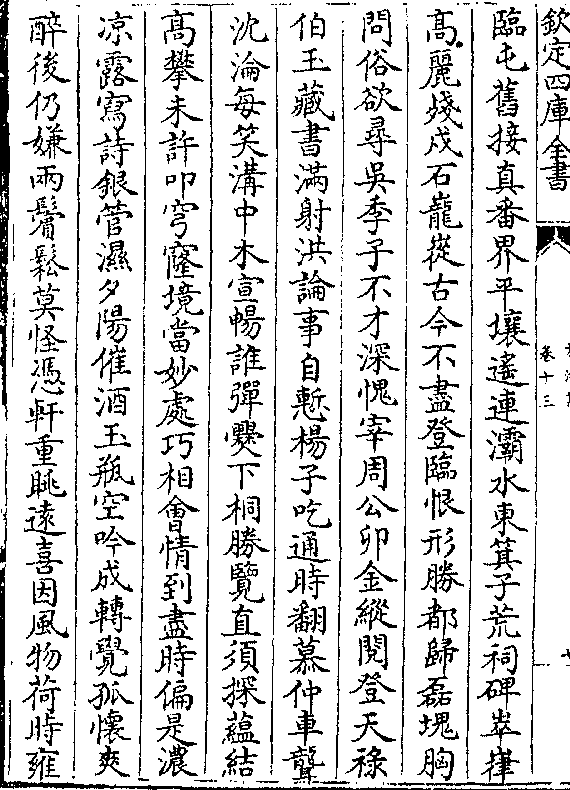 欽定四庫全書
卷十三
臨屯舊接真番界平壤遙連灞水東箕子荒祠碑崒嵂
高麗殘戍石巃嵷古今不盡登臨恨形勝都歸磊塊胸
問俗欲尋吳季子不才深愧宰周公卯金縱閱登天祿
伯玉藏書滿射洪論事自慙楊子吃通時翻慕仲車聾
沈淪每笑溝中木宣暢誰彈爨下桐勝覽直須探蘊結
高攀未許叩穹窿境當妙處巧相會情到盡時偏是濃
凉露寫詩銀管濕夕陽催酒玉瓶空吟成轉覺孤懷爽
醉後仍嫌兩鬢鬆莫怪憑軒重眺遠喜因風物荷時雍